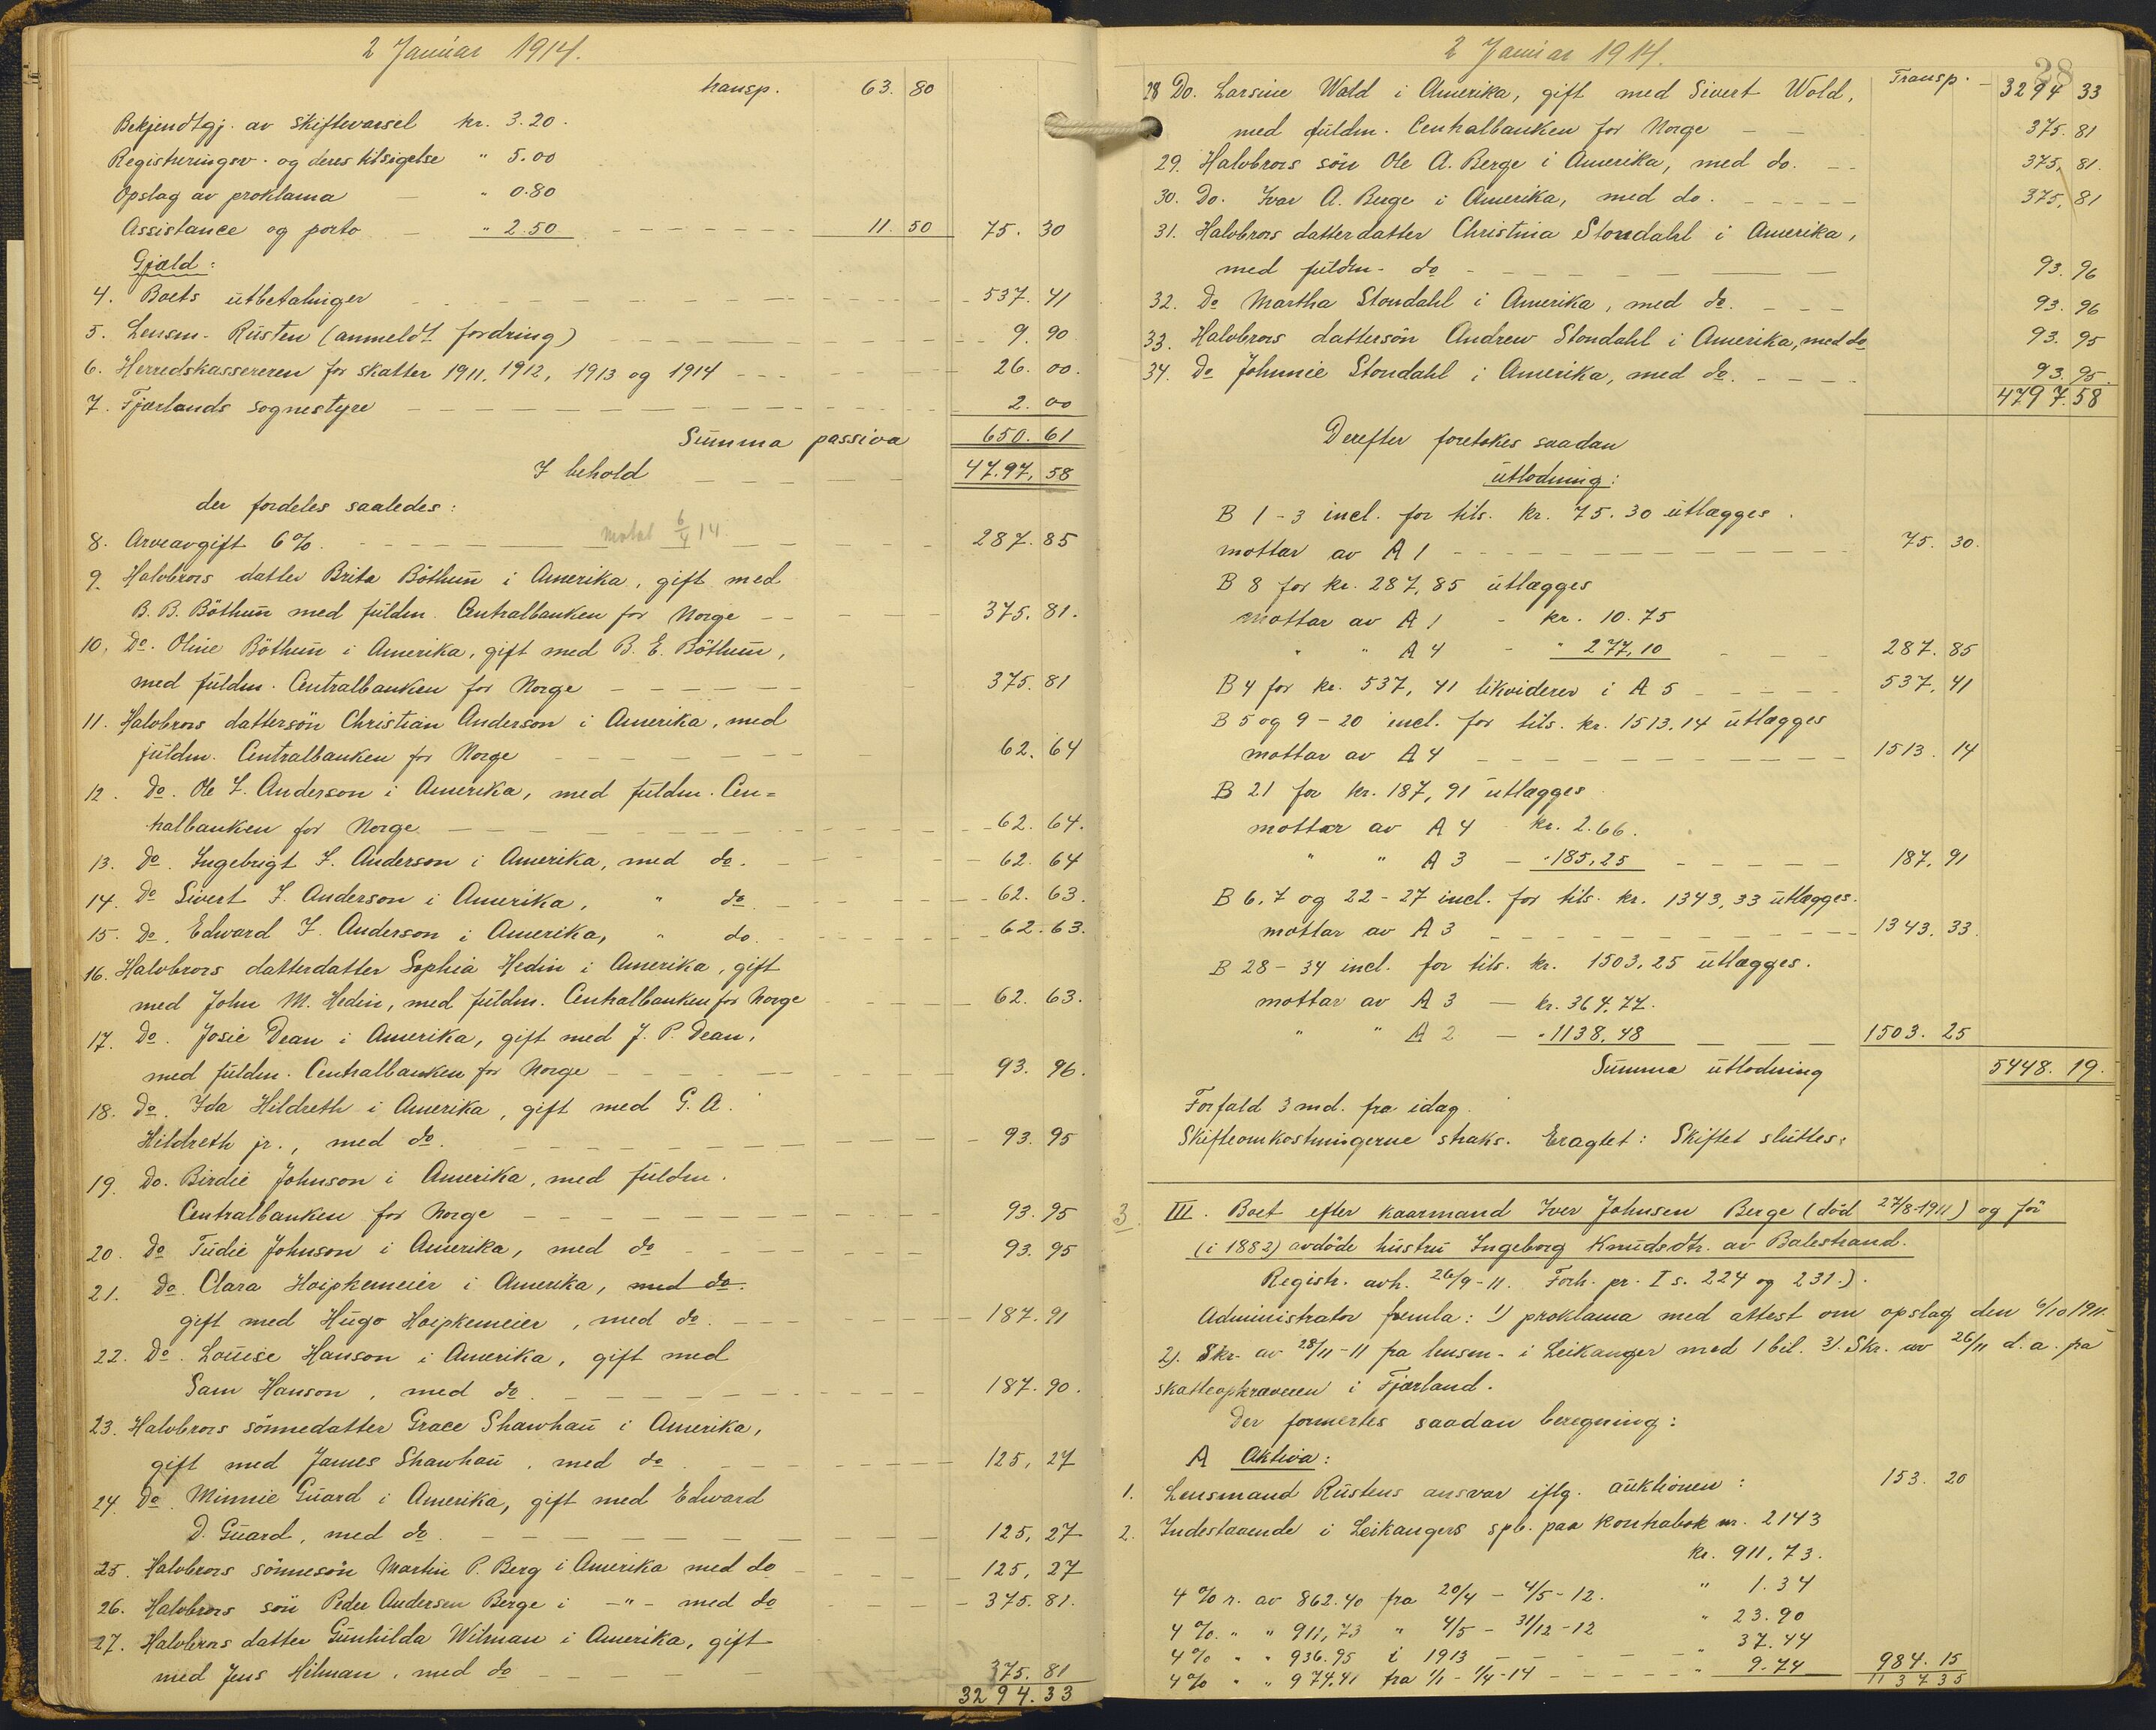 2 Januar 1914.
transp. 63. 80
Bekjendtgj. av skiftevarsel kr. 3.20.
Registreringsv. og deres tilsigelse " 5.00
Opslag av proklama — " 0.80
Assistance og porto — " 2.50 11. 50 75. 30
Gjæld:
4. Boets utbetalinger 537. 41
5. Lensm. Rusten (anmeldt fordring) 9. 90
6. Herredskassereren for skatter 1911, 1912, 1913 og 1914 26. 00.
7. Fjærlands sognestyre 2. 00
Summa passiva 650. 61
I behold 47.97, 58
der fordeles saaledes:
8. Arveavgift 6%. 6/4 14 287. 85
9. Halvbrors datter Brita Böthun i Amerika, gift med
B. B. Böthun med fuldm. Centralbanken for Norge 375. 81.
10. Do. Oline Böthun i Amerika, gift med B. E. Böthun,
med fuldm. Centralbanken for Norge 375. 81
11. Halvbrors dattersön Christian Anderson i Amerika, med
fuldm. Centralbanken for Norge 62. 64
12. Do. Ole I. Anderson i Amerika, med fuldm. Cen=
tralbanken for Norge 62. 64.
13. Do. Ingebrigt I. Anderson i Amerika, med do. 62. 64
14. Do Sivert I. Anderson i Amerika, " do 62. 63.
15. Do. Edward I. Anderson i Amerika, " do. 62. 63.
16. Halvbrors datterdatter Sophia Hedin i Amerika, gift
med John M. Hedin, med fuldm. Centralbanken for Norge 62. 63.
17. Do. Josie Dean i Amerika, gift med J. P. Dean,
med fuldm. Centralbanken for Norge 93. 96.
18. Do. Ida Hildreth i Amerika, gift med G. A.
Hildreth jr., med do. 93. 95
19. Do. Birdie Johnson i Amerika, med fuldm.
Centralbanken for Norge 93. 95
20. Do Tudie Johnson i Amerika, med do 93. 95
21. Do. Clara Hoipkemeier i Amerika, med do.
gift med Hugo Hoipkemeier, med do. 187. 91
22. Do. Louise Hanson i Amerika, gift med
Sam Hanson, med do. 187. 90.
23. Halvbrors sönnedatter Grace Shawhan i Amerika,
gift med James Shawhan, med do. 125, 27
24. Do. Minnie Guard i Amerika, gift med Edward
D. Guard, med do. 125, 27
25. Halvbrors sönnesön Martin P. Berg i Amerika med do 125, 27
26. Halvbrors sön Peder Andersen Berge i -"- med do 375. 81.
27. Halvbrors datter Gunhilda Wilman i Amerika, gift
med Jens Hilman, med do 375. 81
3294. 33
2 Januar 1914.
28
28 Do. Larsine Wold i Amerika, gift med Sivert Wold, Transp. 3294 33
med fuldm. Centralbanken for Norge 375. 81
29. Halvbrors sön Ole A. Berge i Amerika, med do. 375, 81.
30. Do. Ivar A. Berge i Amerika, med do. 375, 81
31. Halvbrors datterdatter Christina Stondahl i Amerika,
med fuldm. do 93. 96
32. Do Martha Stondahl i Amerika, med do. 93. 96
33. Halvbrors dattersön Andrew Stondahl i Amerika, med do 93. 95
34. Do Johnnie Stondahl i Amerika, med do. 93. 95.
4797. 58
Derefter foretokes saadan
utlodning:
B 1-3 incl. for tils. kr. 75.30 utlægges.
mottar av A 1 75. 30.
B 8 for kr. 287,85 utlægges
mottar av A 1 - kr. 10.75
" " A 4 - " 277,10 287. 85
B 4 for kr. 537,41 likviderer i A 5 537, 41
B 5 og 9-20 incl. for tils. kr. 1513,14 utlægges
mottar av A 4 1513. 14
B 21 for kr. 187,91 utlægges
mottar av A 4 kr. 2.66.
" " A 3 — " 185,25 187, 91
B 6, 7 og 22-27 incl. for tils. kr. 1343,33 utlægges.
mottar av A 3 1343. 33
B 28-34 incl. for tils. kr. 1503,25 utlægges.
mottar av A 3 — kr. 364,77.
" " A 2 — " 1138,48 1503. 25
Summa utlodning 5448. 19.
Forfald 3 md. fra idag.
Skifteomkostningerne straks. Eragtet: Skiftet sluttes.
3 III. Boet efter kaarmand Iver Johnsen Berge (död 27/8-1911) og för
(i 1882) avdöde hustru Ingeborg Knudsdtr. av Balestrand.
Registr. avh. 26/9-11. Forh. pr. I s. 224 og 231.).
Administrator fremla: 1) proklama med attest om opslag den 6/10 1911.
2). Skr. av 28/11-11 fra lensm. i Leikanger med 1 bil. 3). Skr. av 26/11 d.a. fra
skatteopkræveren i Fjærland.
Der formertes saadan beregning:
A Aktiva:
1. Lensmand Rustens ansvar iflg. auktionen: 153. 20
2. Indestaaende i Leikangers spb. paa kontrabok nr. 2143
kr. 911,73.
4% r. av 862.40 fra 20/4 - 4/5-12. " 1.34
4%. " " 911,73 " 4/5 - 31/12-12 " 23.90
4% " " 936.95 i 1913 " 37.44
4% " " 974,41 fra 1/1 - 1/4-14 " 9.74 984. 15
1137 35